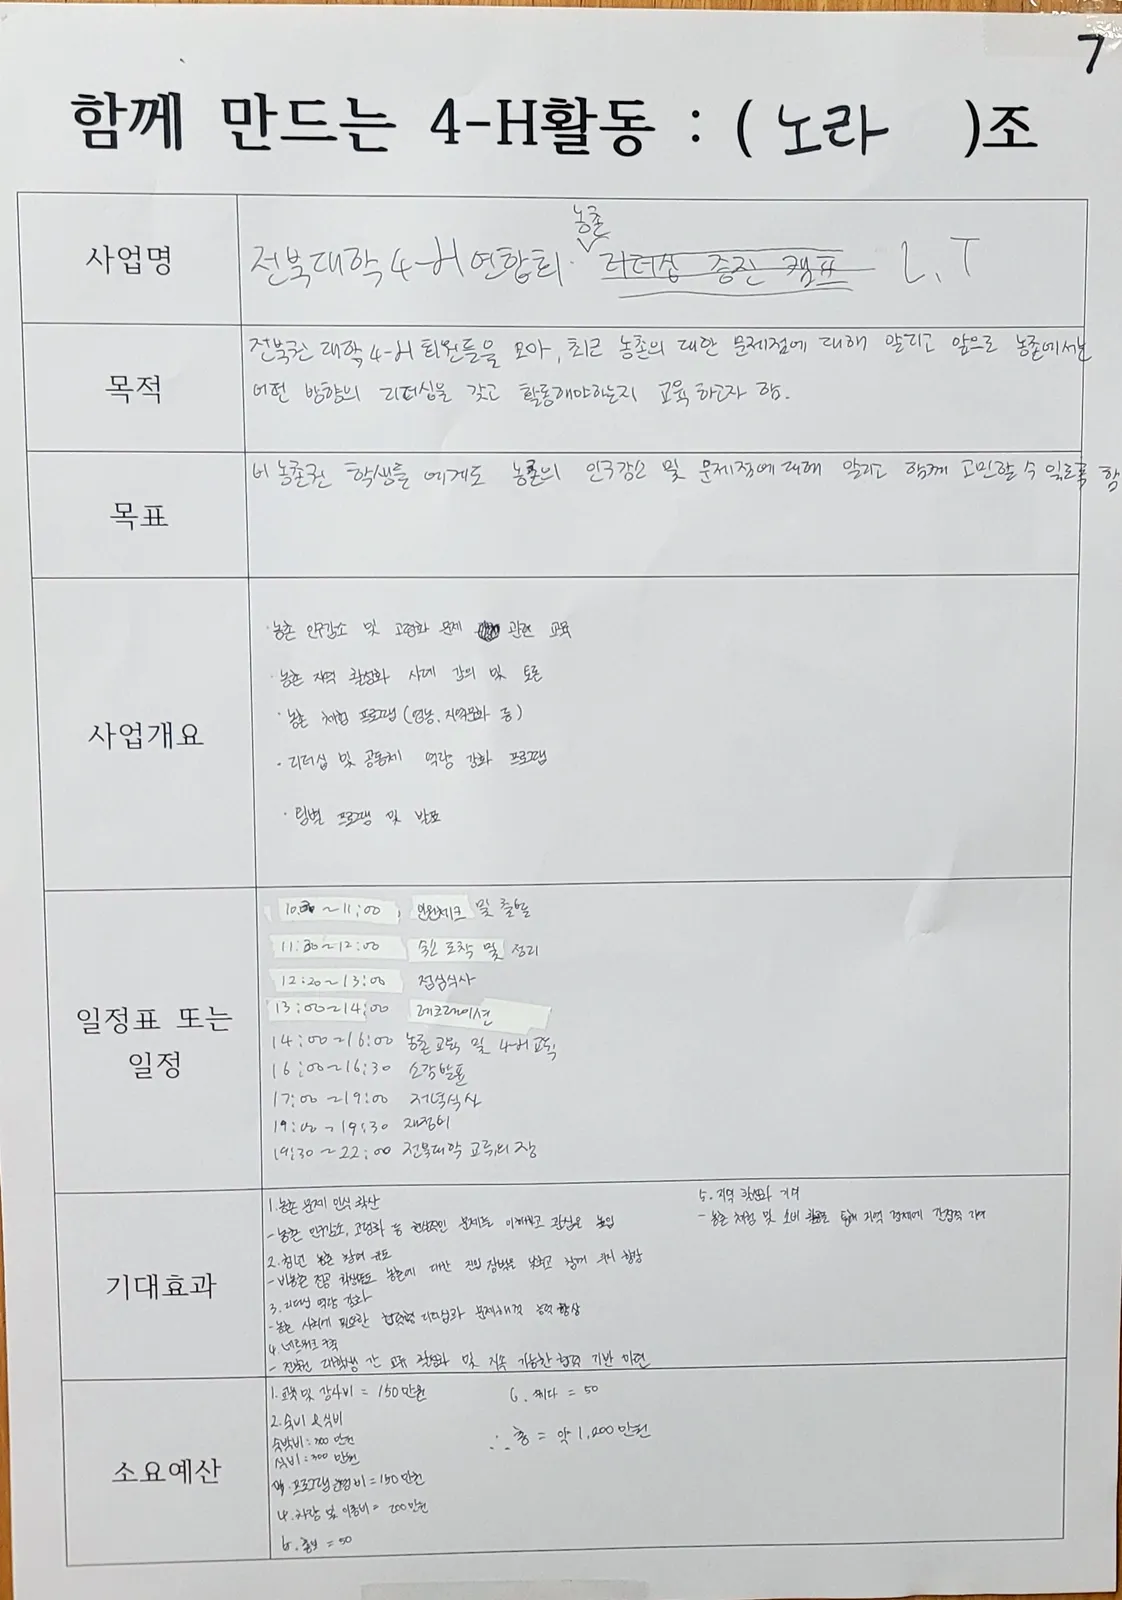 7
함께 만드는 4-H활동 : ( 노라 )조
사업명
농촌
전북대학 4-H연합회. 리더십 증진 캠프 L.T
목적
전북권 대학 4-H 회원들을 모아, 최근 농촌의 대한 문제점에 대해 알리고 앞으로 농촌에서는
어떤 방향의 리더십을 갖고 활동해야하는지 교육 하고자 함.
목표
비 농촌권 학생들 에게도 농촌의 인구감소 및 문제점에 대해 알리고 함께 고민할 수 있도록 함
사업개요
· 농촌 인구감소 및 고령화 문제 관련 교육
· 농촌 지역 활성화 사례 강의 및 토론
· 농촌 체험 프로그램 (영농, 지역문화 등)
· 리더십 및 공동체 역량 강화 프로그램
· 팀별 프로그램 및 발표
일정표 또는
일정
10:30 ~ 11:00, 인원체크 및 출발
11:30 ~ 12:00 숙소 도착 및 정리
12:20 ~ 13:00 점심식사
13:00 ~ 14:00 레크레이션
14:00 ~ 16:00 농촌 교육 및 4-H교육
16:00 ~ 16:30 소감발표
17:00 ~ 19:00 저녁식사
19:00 ~ 19:30 재정비
19:30 ~ 22:00 전북대학 교류의 장
기대효과
1. 농촌 문제 인식 확산
- 농촌 인구감소, 고령화 등 현실적인 문제를 이해하고 관심을 높임
2. 청년 농촌 참여 유도
- 비농촌 전공 학생들도 농촌에 대한 진입 장벽을 낮추고 참여 의지 향상
3. 리더십 역량 강화
- 농촌 사회에 필요한 협력형 리더십과 문제해결 능력 향상
4. 네트워크 구축
- 전북권 대학생 간 교류 활성화 및 지속 가능한 협력 기반 마련
5. 지역 활성화 기여
- 농촌 체험 및 소비 활동을 통해 지역 경제에 간접적 기여
소요예산
1. 교육 및 강사비 = 150만원
2. 숙비 & 식비
숙박비 : 300 만원
식비 : 300 만원
프로그램 운영비 = 150만원
4. 차량 및 이동비 = 200만원
홍보 = 50
6. 기타 = 50
∴ 총 = 약 1,200만원